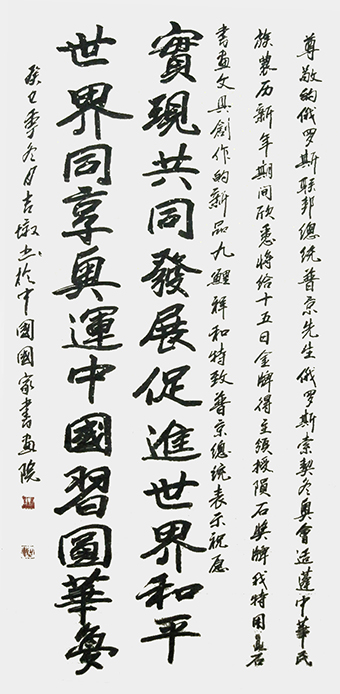 尊敬的俄罗斯联邦總统普京先生俄罗斯索契冬奥會适逢中華民
族農历新年期间欣悉將给十五日金牌得主颁授陨石奖牌我特用鼻石
書画文具創作的新品九鯉祥和特致普京總统表示祝愿
實現共同發展促進世界和平
世界同享奥運中國習圖華夢
癸巳季冬月吉墩书於中國國家書画院